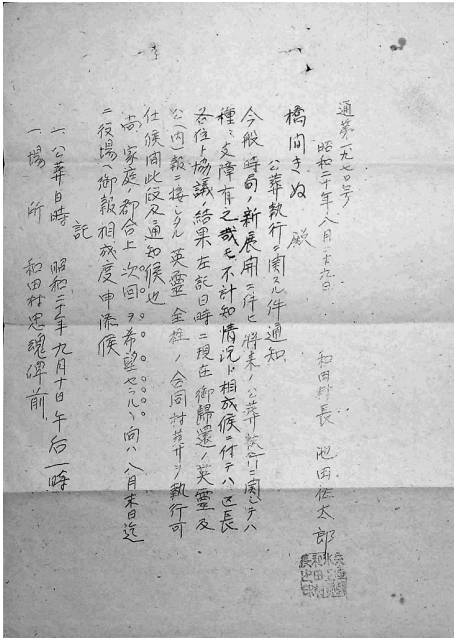 通第一九七〇号
昭和二十年八月二十九日
和田村長 池田佐太郎
橋間きぬ殿
公葬執行ニ関スル件通知
今般時局ノ新展開ニ件ヒ将来ノ公葬執行ニ関シテハ
種々支障有之哉モ不計知情況ト相成候ニ付テハ区長
各位ト協議ノ結果左記日時ニ現在御帰還ノ英霊及
公(内)報ニ接シタル英霊全柱ノ合同村葬ヲ執行可
仕候間此段及通知候也
尚家庭ノ都合上次回ヲ希望セラルヽ向ハ八月末日迄
ニ役場ヘ御報相成度申添候
記
一、公葬日時 昭和二十年九月十日午后一時
一、場所 和田村忠魂碑前
兵庫県氷上郡和田村長之印